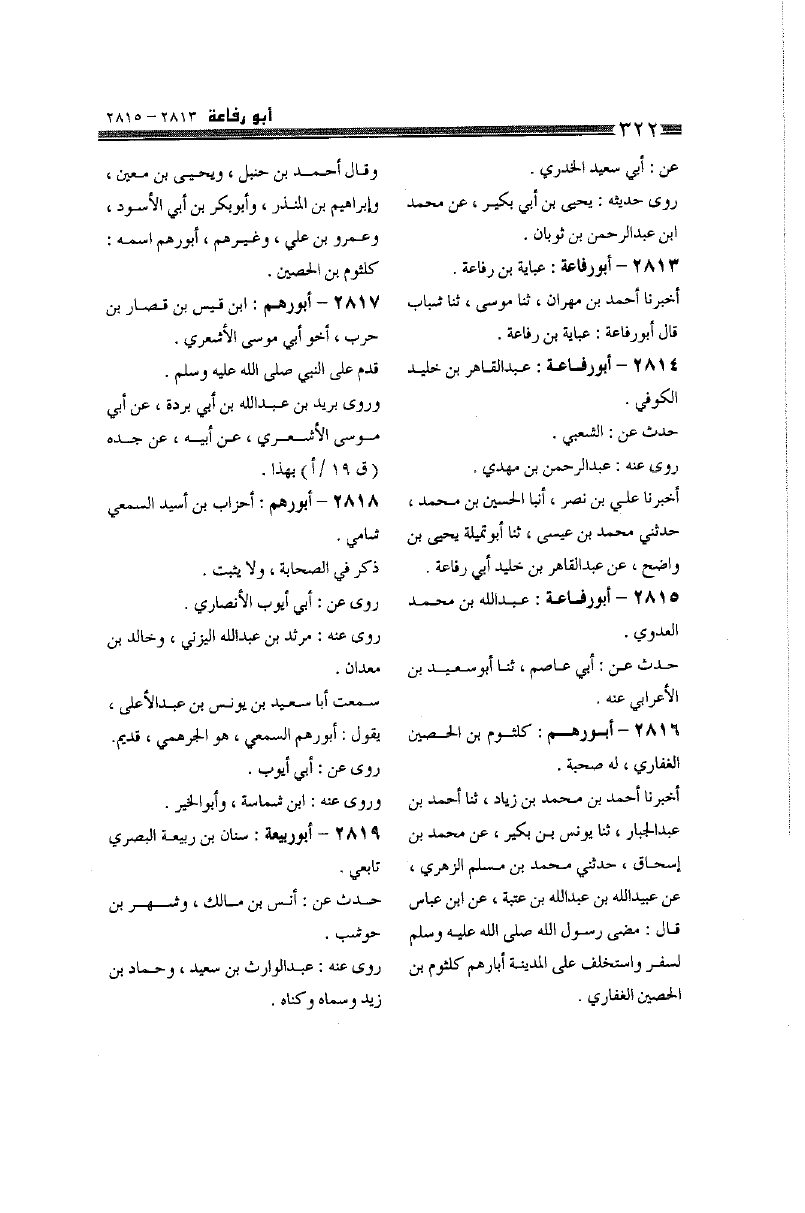 أبو رفاعة ٢٨١٣ – ٢٨١٥
٣٢٢
عن : أبي سعيد الخدري .
روى حديثه : يحيى بن أبي بكير ، عن محمد
ابن عبدالرحمن بن ثوبان .
٢٨١٣ – أبورفاعة : عباية بن رفاعة .
أخبرنا أحمد بن مهران ، ثنا موسى ، ثنا شباب
قال أبورفاعة : عباية بن رفاعة .
٢٨١٤ – أبورفاعة : عبدالقاهر بن خليد
الكوفي .
حدث عن : الشعبي .
روى عنه : عبدالرحمن بن مهدي .
أخبرنا علي بن نصر ، أنبا الحسين بن محمد ،
حدثني محمد بن عيسى ، ثنا أبوتميلة يحيى بن
واضح ، عن عبدالقاهر بن خليد أبي رفاعة .
٢٨١٥ – أبورفاعة : عبدالله بن محمد
العدوي .
حدث عن : أبي عاصم ، ثنا أبوسعيد بن
الأعرابي عنه .
٢٨١٦ – أبورهم : كلثوم بن الحصين
الغفاري ، له صحبة .
أخبرنا أحمد بن محمد بن زياد ، ثنا أحمد بن
عبدالجبار ، ثنا يونس بن بكير ، عن محمد بن
إسحاق ، حدثني محمد بن مسلم الزهري ،
عن عبيدالله بن عبدالله بن عتبة ، عن ابن عباس
قال : مضى رسول الله صلى الله عليه وسلم
لسفر واستخلف على المدينة أبارهم كلثوم بن
الحصين الغفاري .
وقال أحمد بن حنبل ، ويحيى بن معين ،
وإبراهيم بن المنذر ، وأبوبكر بن أبي الأسود ،
وعمرو بن علي ، وغيرهم ، أبورهم اسمه :
كلثوم بن الحصين .
٢٨١٧ – أبورهم : ابن قيس بن قصار بن
حرب ، أخو أبي موسى الأشعري .
قدم على النبي صلى الله عليه وسلم .
وروى بريد بن عبدالله بن أبي بردة ، عن أبي
موسى الأشعري ، عن أبيه ، عن جده
( ق ١٩ /أ ) بهذا .
٢٨١٨ – أبورهم : أحزاب بن أسيد السمعي
شامي .
ذكر في الصحابة ، ولا يثبت .
روى عن : أبي أيوب الأنصاري .
روى عنه : مرثد بن عبدالله اليزني ، وخالد بن
معدان .
سمعت أبا سعيد بن يونس بن عبدالأعلى ،
يقول : أبورهم السمعي ، هو الجرهمي ، قديم.
روى عن : أبي أيوب .
وروى عنه : ابن شماسة ، وأبوالخير .
٢٨١٩ – أبوربيعة : سنان بن ربيعة البصري
تابعي .
حدث عن : أنس بن مالك ، وشهر بن
حوشب .
روى عنه : عبدالوارث بن سعيد ، وحماد بن
زيد وسماه وكناه .